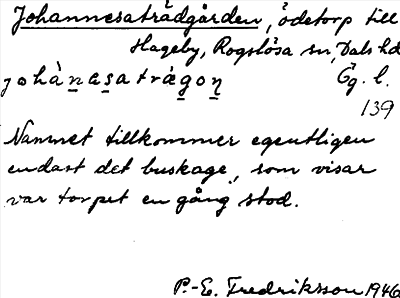 Johannesaträdgården, ödetorp till
Hageby, Rogslösa sn, Dals hd
johànasatrágon Ög. l.
139
Namnet tillkommer egentligen
endast det buskage, som visar
var torpet en gång stod.
P.-E. Fredriksson 1946